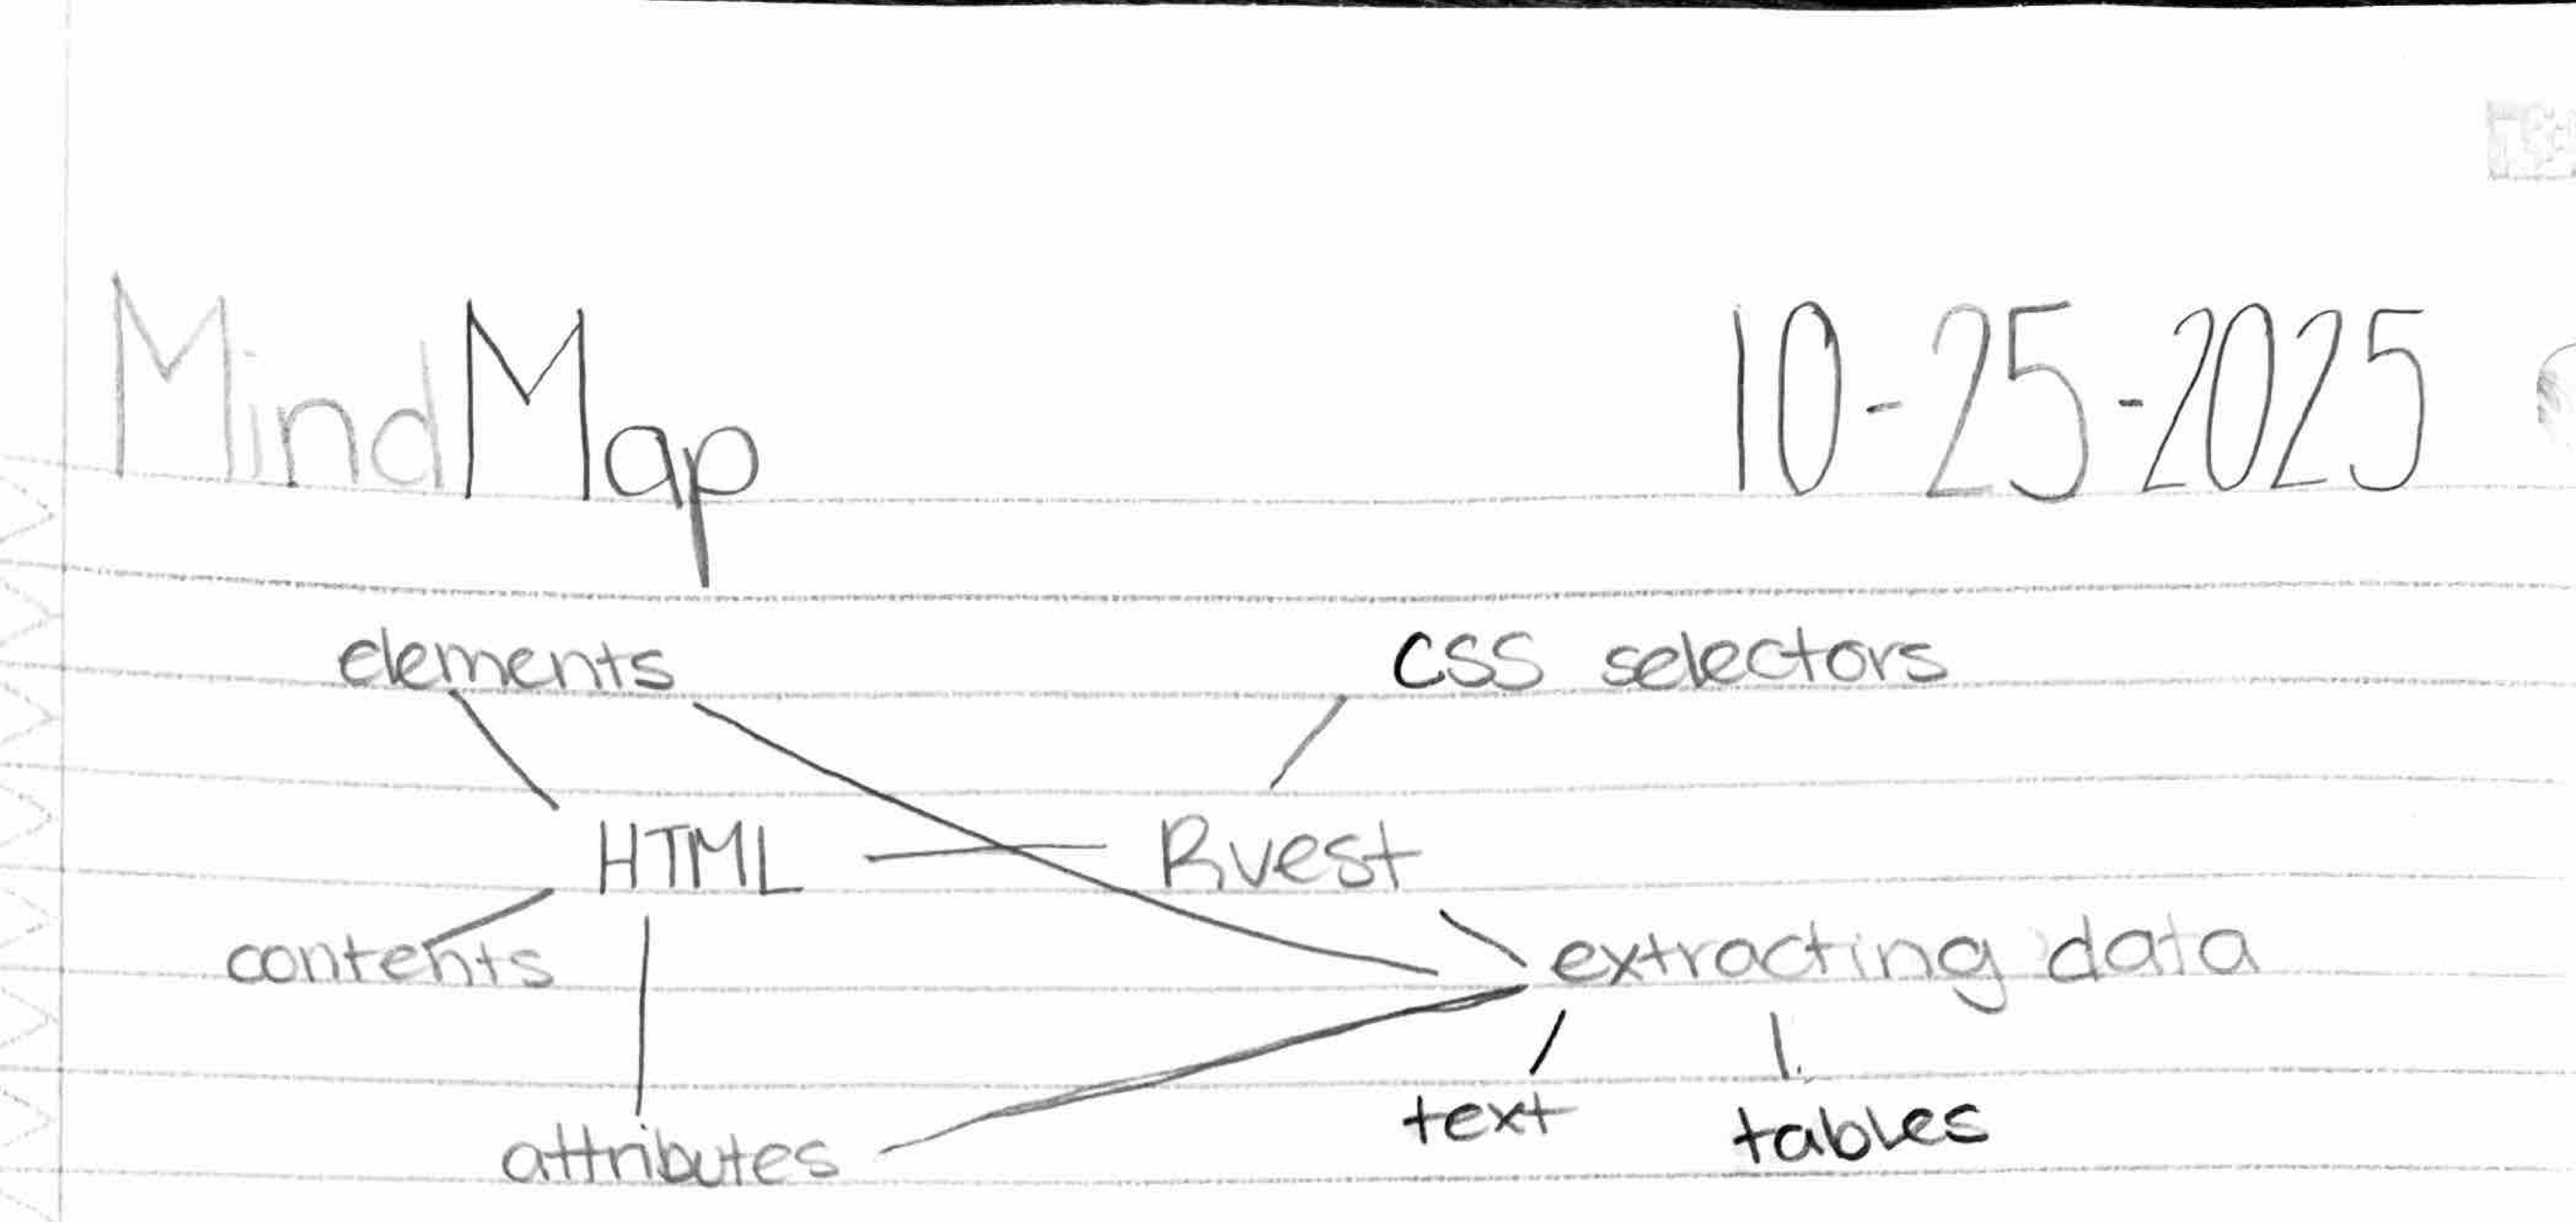 MindMap 10-25-2025
elements CSS selectors
HTML Rvest
contents extracting data
text tables
attributes